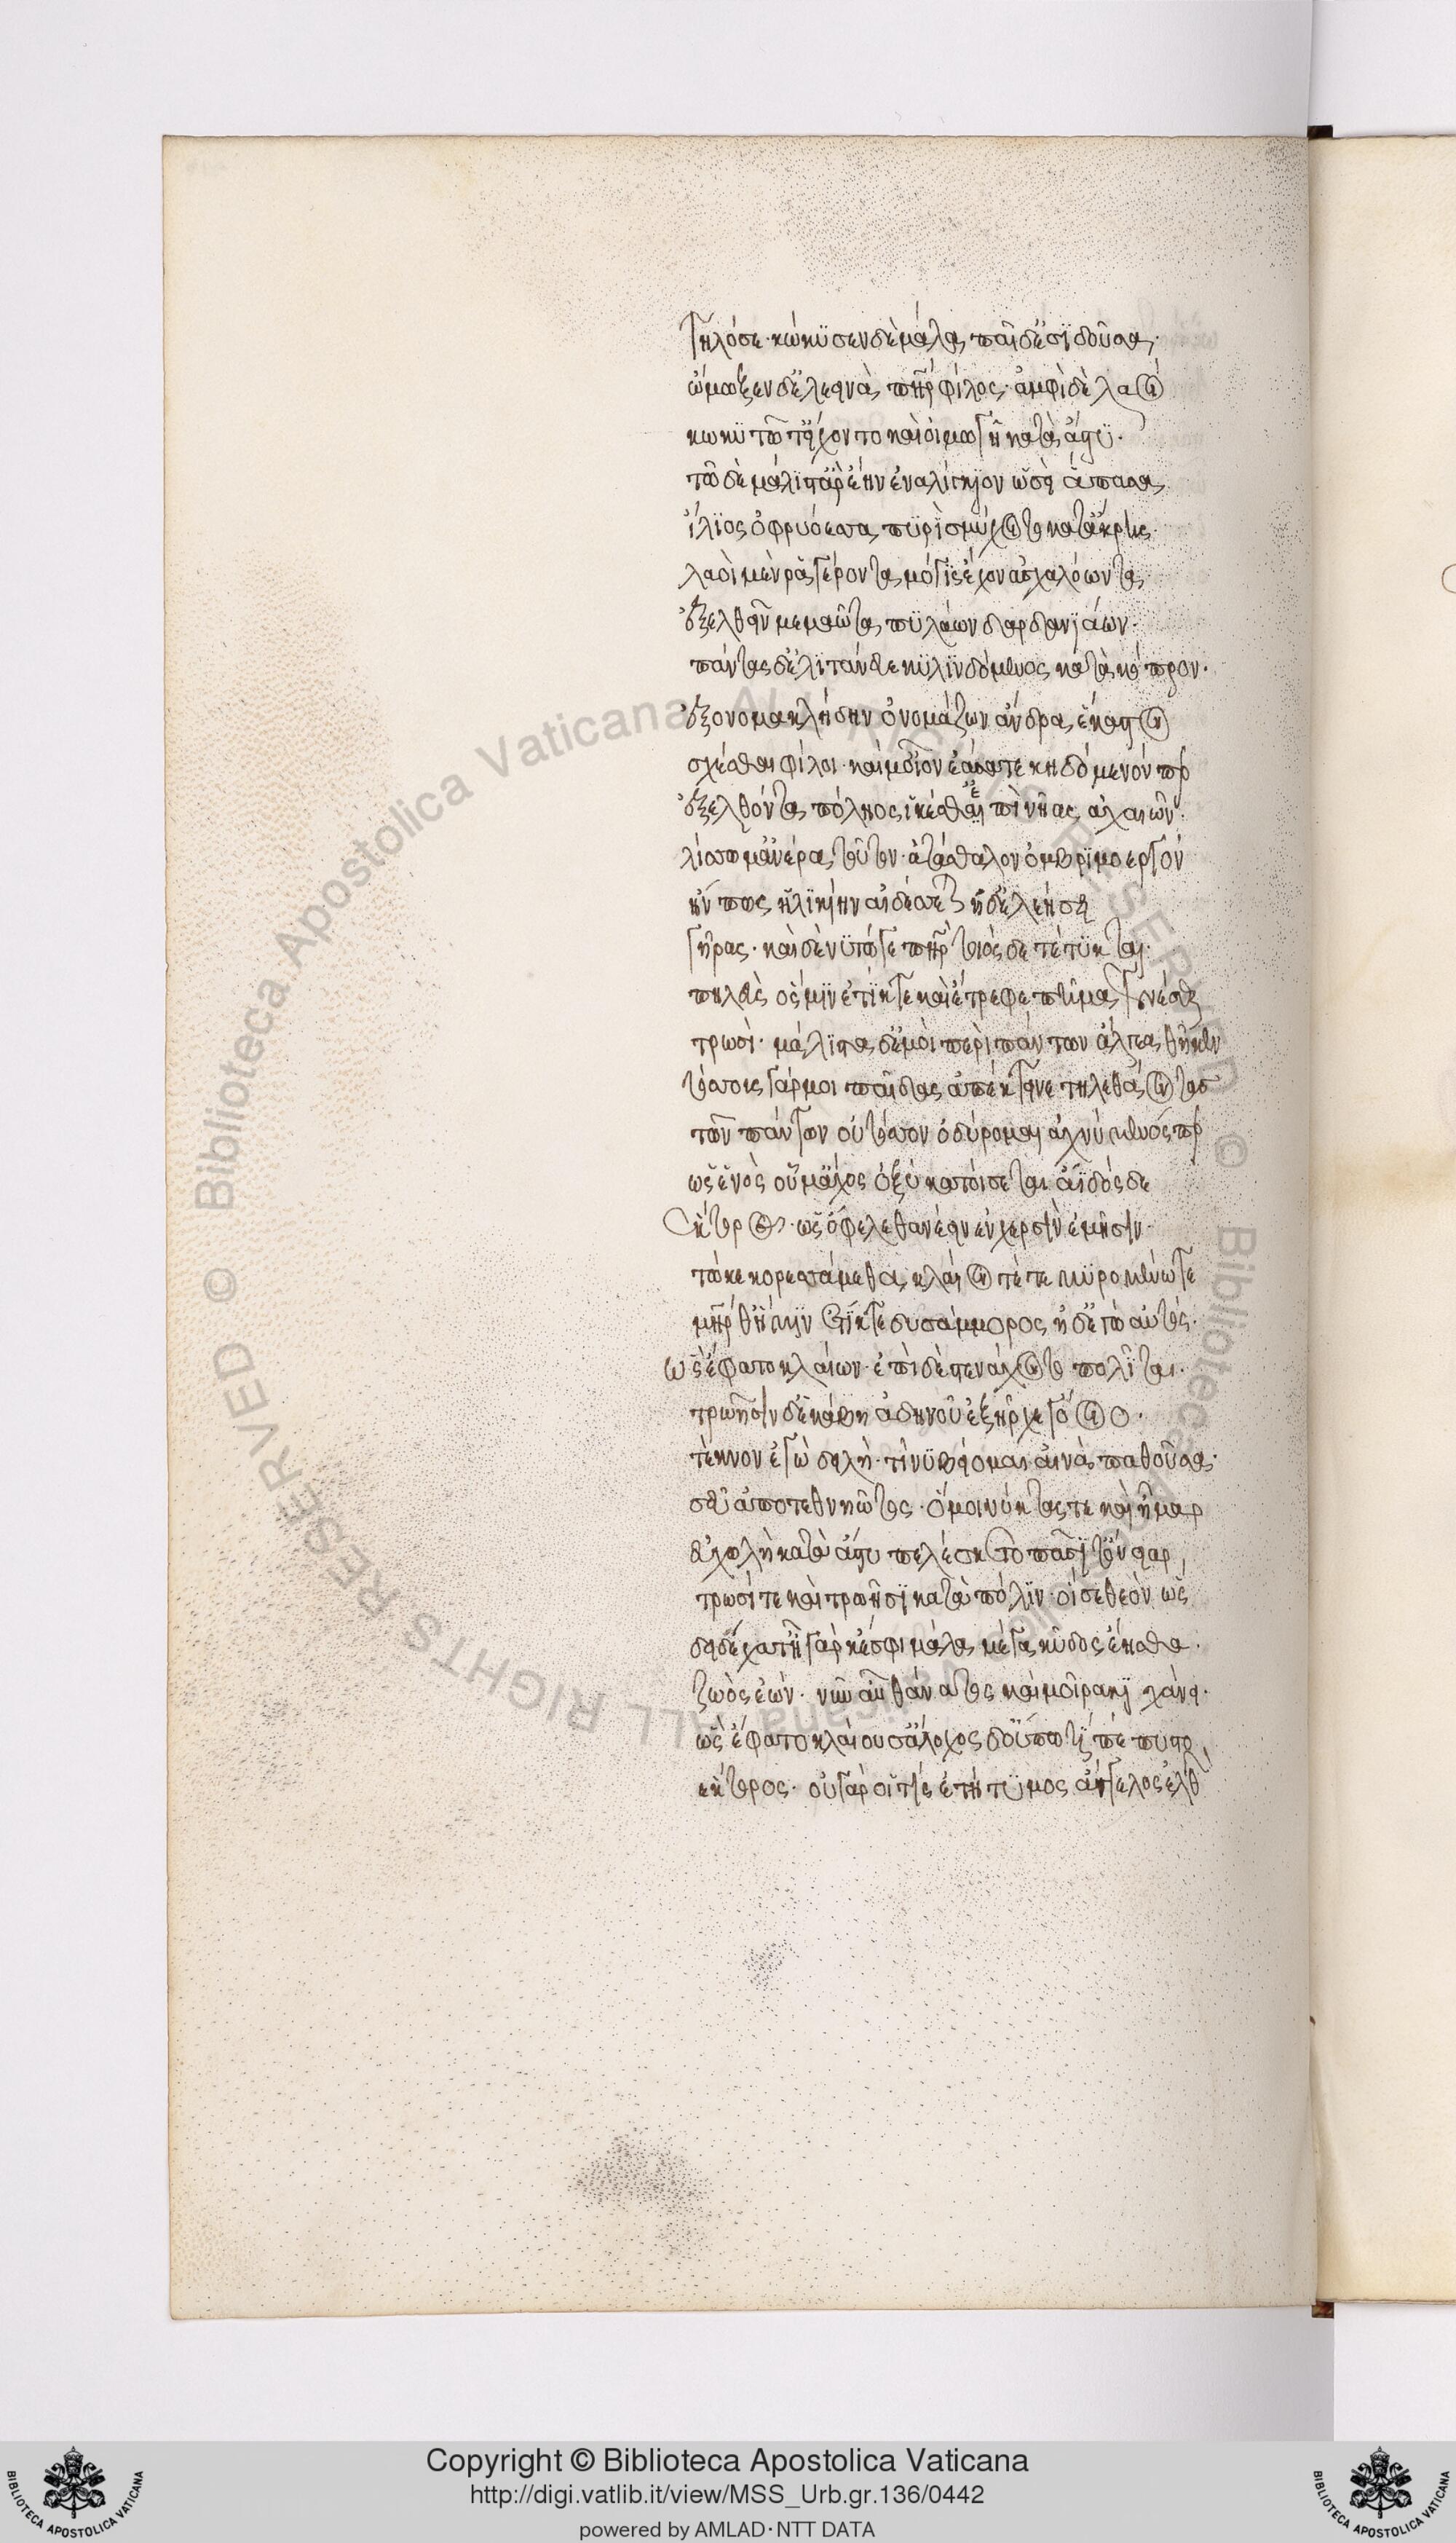 τηλόσε· κώκυσεν δὲ μάλα παῖδ' ἐσϊδοῦσα·
ὤμωξεν δ' ἐλεεινὰ πατὴρ φίλος· ἀμφὶ δὲ λαοὶ
κωκυτῷ τ' εἴχοντο καὶ οἰμωγῇ κατὰ ἄστυ·
τῷ δὲ μάλιστ' ἄρ' ἔην ἐναλίγκιον ὡς εἰ ἅπασα
ἴλϊος ὀφρυόεσσα πυρὶ σμύχοιτο κατάκρης·
λαοὶ μέν ῥα γέροντα μόγις ἔχον ἀσχαλόωντα
ἐξελθεῖν μεμαῶτα πυλάων δαρδανϊάων·
πάντας δ' ἐλϊτάνευε κυλϊνδόμενος κατὰ κόπρον·
ἐξονομακλήδην ὀνομάζων ἄνδρα ἕκαστον
σχέσθαι φίλοι· καί μ' οἶον ἐάσατε κηδόμενόν περ
ἐξελθόντα πόληος ἱκέσθ' ἐπὶ νῆας ἀχαιῶν·
λίσσωμ' ἀνέρα τοῦτον ἀτάσθαλον ὀμβρϊμοεργόν
ἤν πως ἡλϊκίην αἰδέσσεται ἠδ' ἐλεήσῃ
γῆρας· καὶ δέ νυ τῷ γε πατὴρ τοιόσδε τέτυκται·
πηλεὺς ὅς μϊν ἔτϊκτε καὶ ἔτρεφε πῆμα γενέσθαι
τρωσί· μάλιστα δ' ἐμοὶ περὶ πάντων ἄλγεα θῆκεν
τόσσους γάρ μοι παῖδας ἀπέκτεινε τηλεθάοντας
τῶν πάντων οὐ τόσσον ὀδύρομαι ἀχνύμενός περ
ὡς ἑνὸς οὗ μ' ἄχος ὀξὺ κατοίσεται ἄϊδος δε
ἕκτορος· ὡς ὄφελε θανέειν ἐν χερσὶν ἐμῆσιν·
τώ κε κορεσσάμεθα κλαίοντέ τε μυρομένω τε
μήτηρ θ' ἥ μϊν ἔτϊκτε δυσάμμορος ἠδ' ἐγὼ αὐτός·
ὣς ἔφατο κλαίων· ἐπὶ δὲ στενάχοντο πολῖται·
τρωῇσιν δ' ἑκάβη ἁδηνοῦ ἐξῆρχε γόοιο·
τέκνον ἐγὼ δειλή· τί νυ βείομαι αἰνὰ παθοῦσα·
σεῦ ἀποτεθνηῶτος· ὅ μοι νύκτας τε καὶ ἦμαρ
εὐχωλὴ κατὰ ἄστυ πελέσκεο πᾶσϊ τ' ὄνειαρ
τρωσί τε καὶ τρωῇσϊ κατὰ πόλϊν· οἵ σε θεὸν ὣς
δειδέχατ' ἦ γὰρ κέ σφι μάλα μέγα κῦδος ἔησθα·
ζωὸς ἐών· νῦν αὖ θάνατος καὶ μοῖρα κϊχάνει·
ὣς ἔφατο κλαίουσ' ἄλοχος δ' οὔπω τϊ πέπυστο
ἕκτορος· οὐ γάρ οἵ τις ἐτήτυμος ἄγγελος ἐλθ
Copyright © Biblioteca Apostolica Vaticana
http://digi.vatlib.it/view/MSS_Urb.gr.136/0442
powered by AMLAD·NTT DATA